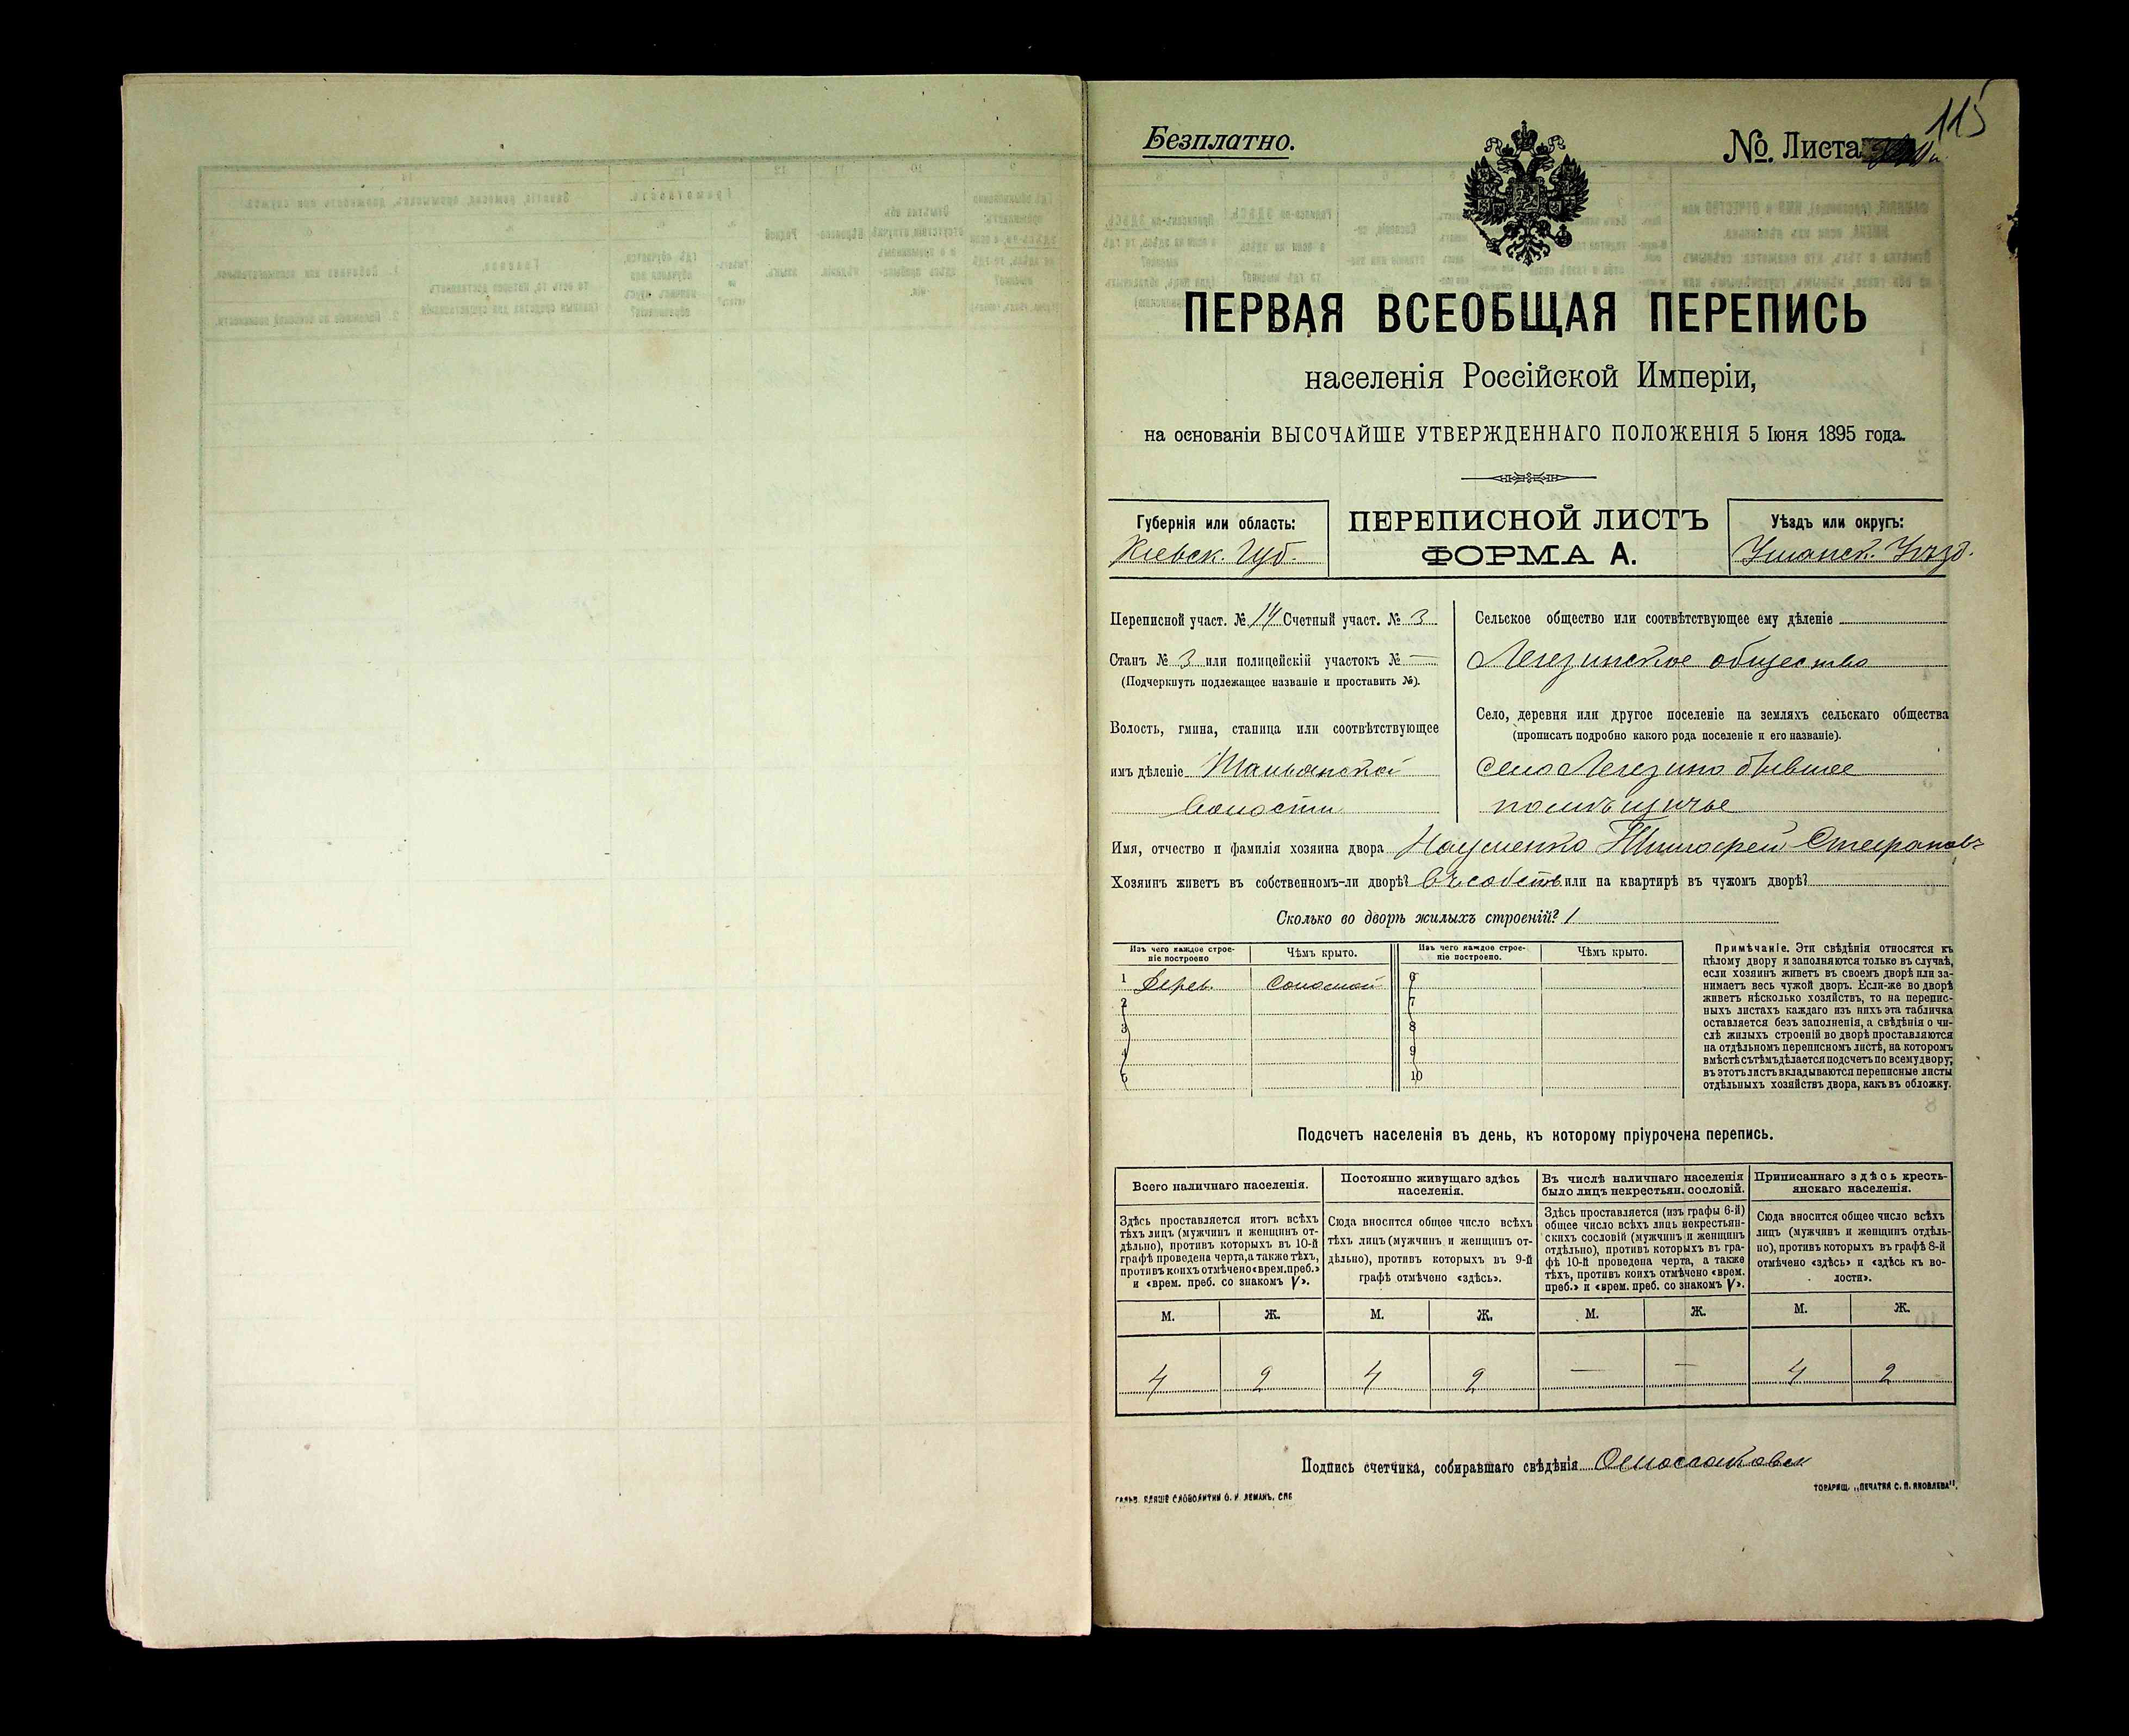 Безплатно.
№. Листа
115
ПЕРВАЯ ВСЕОБЩАЯ ПЕРЕПИСЬ
населенія Россійской Имперіи,
на основаніи ВЫСОЧАЙШЕ УТВЕРЖДЕННАГО ПОЛОЖЕНІЯ 5 Іюня 1895 года.
Губернія или область:
Кіевск. Губ.
ПЕРЕПИСНОЙ ЛИСТЪ
ФОРМА А.
Уѣздъ или округъ:
Уманск. Уѣзд.
Переписной участ. № 14 Счетный участ. № 3
Станъ № 3 или полицейскій участокъ № —
(Подчеркнуть подлежащее названіе и проставить №).
Волость, гмина, станица или соотвѣтствующее
имъ дѣленіе Тальянской
волости
Сельское общество или соотвѣтствующее ему дѣленіе
Легезинское общество
Село, деревня или другое поселеніе на земляхъ сельскаго общества
(прописать подробно какого рода поселеніе и его названіе).
село Легезино бывшее
помѣщичье
Имя, отчество и фамилія хозяина двора Науменко Тимофей Стефановъ
Хозяинъ живетъ въ собственномъ-ли дворѣ? въ собств или на квартирѣ въ чужомъ дворѣ?
Сколько во дворѣ жилыхъ строеній? 1
Изъ чего каждое строе-
ніе построено
Чѣмъ крыто.
Изъ чего каждое строе-
ніе построено.
Чѣмъ крыто.
1 Дерев. Соломой 6
2 7
3 8
4 9
5 10
Примѣчаніе. Эти свѣдѣнія относятся къ
цѣлому двору и заполняются только въ случаѣ,
если хозяинъ живетъ въ своемъ дворѣ или за-
нимаетъ весь чужой дворъ. Если-же во дворѣ
живетъ нѣсколько хозяйствъ, то на перепис-
ныхъ листахъ каждаго изъ нихъ эта табличка
оставляется безъ заполненія, а свѣдѣнія о чи-
слѣ жилыхъ строеній во дворѣ проставляются
на отдѣльномъ переписномъ листѣ, на которомъ
вмѣстѣ съ тѣмъ дѣлается подсчетъ по всему двору;
въ этотъ листъ вкладываются переписные листы
отдѣльныхъ хозяйствъ двора, какъ въ обложку.
Подсчетъ населенія въ день, къ которому пріурочена перепись.
Всего наличнаго населенія.
Здѣсь проставляется итогъ всѣхъ
тѣхъ лицъ (мужчинъ и женщинъ от-
дѣльно), противъ которыхъ въ 10-й
графѣ проведена черта, а также тѣхъ,
противъ коихъ отмѣчено «врем. преб.»
и «врем. преб. со знакомъ V».
Постоянно живущаго здѣсь
населенія.
Сюда вносится общее число всѣхъ
тѣхъ лицъ (мужчинъ и женщинъ от-
дѣльно), противъ которыхъ въ 9-й
графѣ отмѣчено «здѣсь».
Въ числѣ наличнаго населенія
было лицъ некрестьян. сословій.
Здѣсь проставляется (изъ графы 6-й)
общее число всѣхъ лицъ некрестьян-
скихъ сословій (мужчинъ и женщинъ
отдѣльно), противъ которыхъ въ гра-
фѣ 10-й проведена черта, а также
тѣхъ, противъ коихъ отмѣчено «врем.
преб.» и «врем. преб. со знакомъ V».
Приписаннаго здѣсь кресть-
янскаго населенія.
Сюда вносится общее число всѣхъ
лицъ (мужчинъ и женщинъ отдѣль-
но), противъ которыхъ въ графѣ 8-й
отмѣчено «здѣсь» и «здѣсь къ во-
лости».
М. Ж. М. Ж. М. Ж. М. Ж.
4 2 4 2 — — 4 2
Подпись счетчика, собиравшаго свѣдѣнія
ТОВАРИЩ. „ПЕЧАТНЯ С. П. ЯКОВЛЕВА".